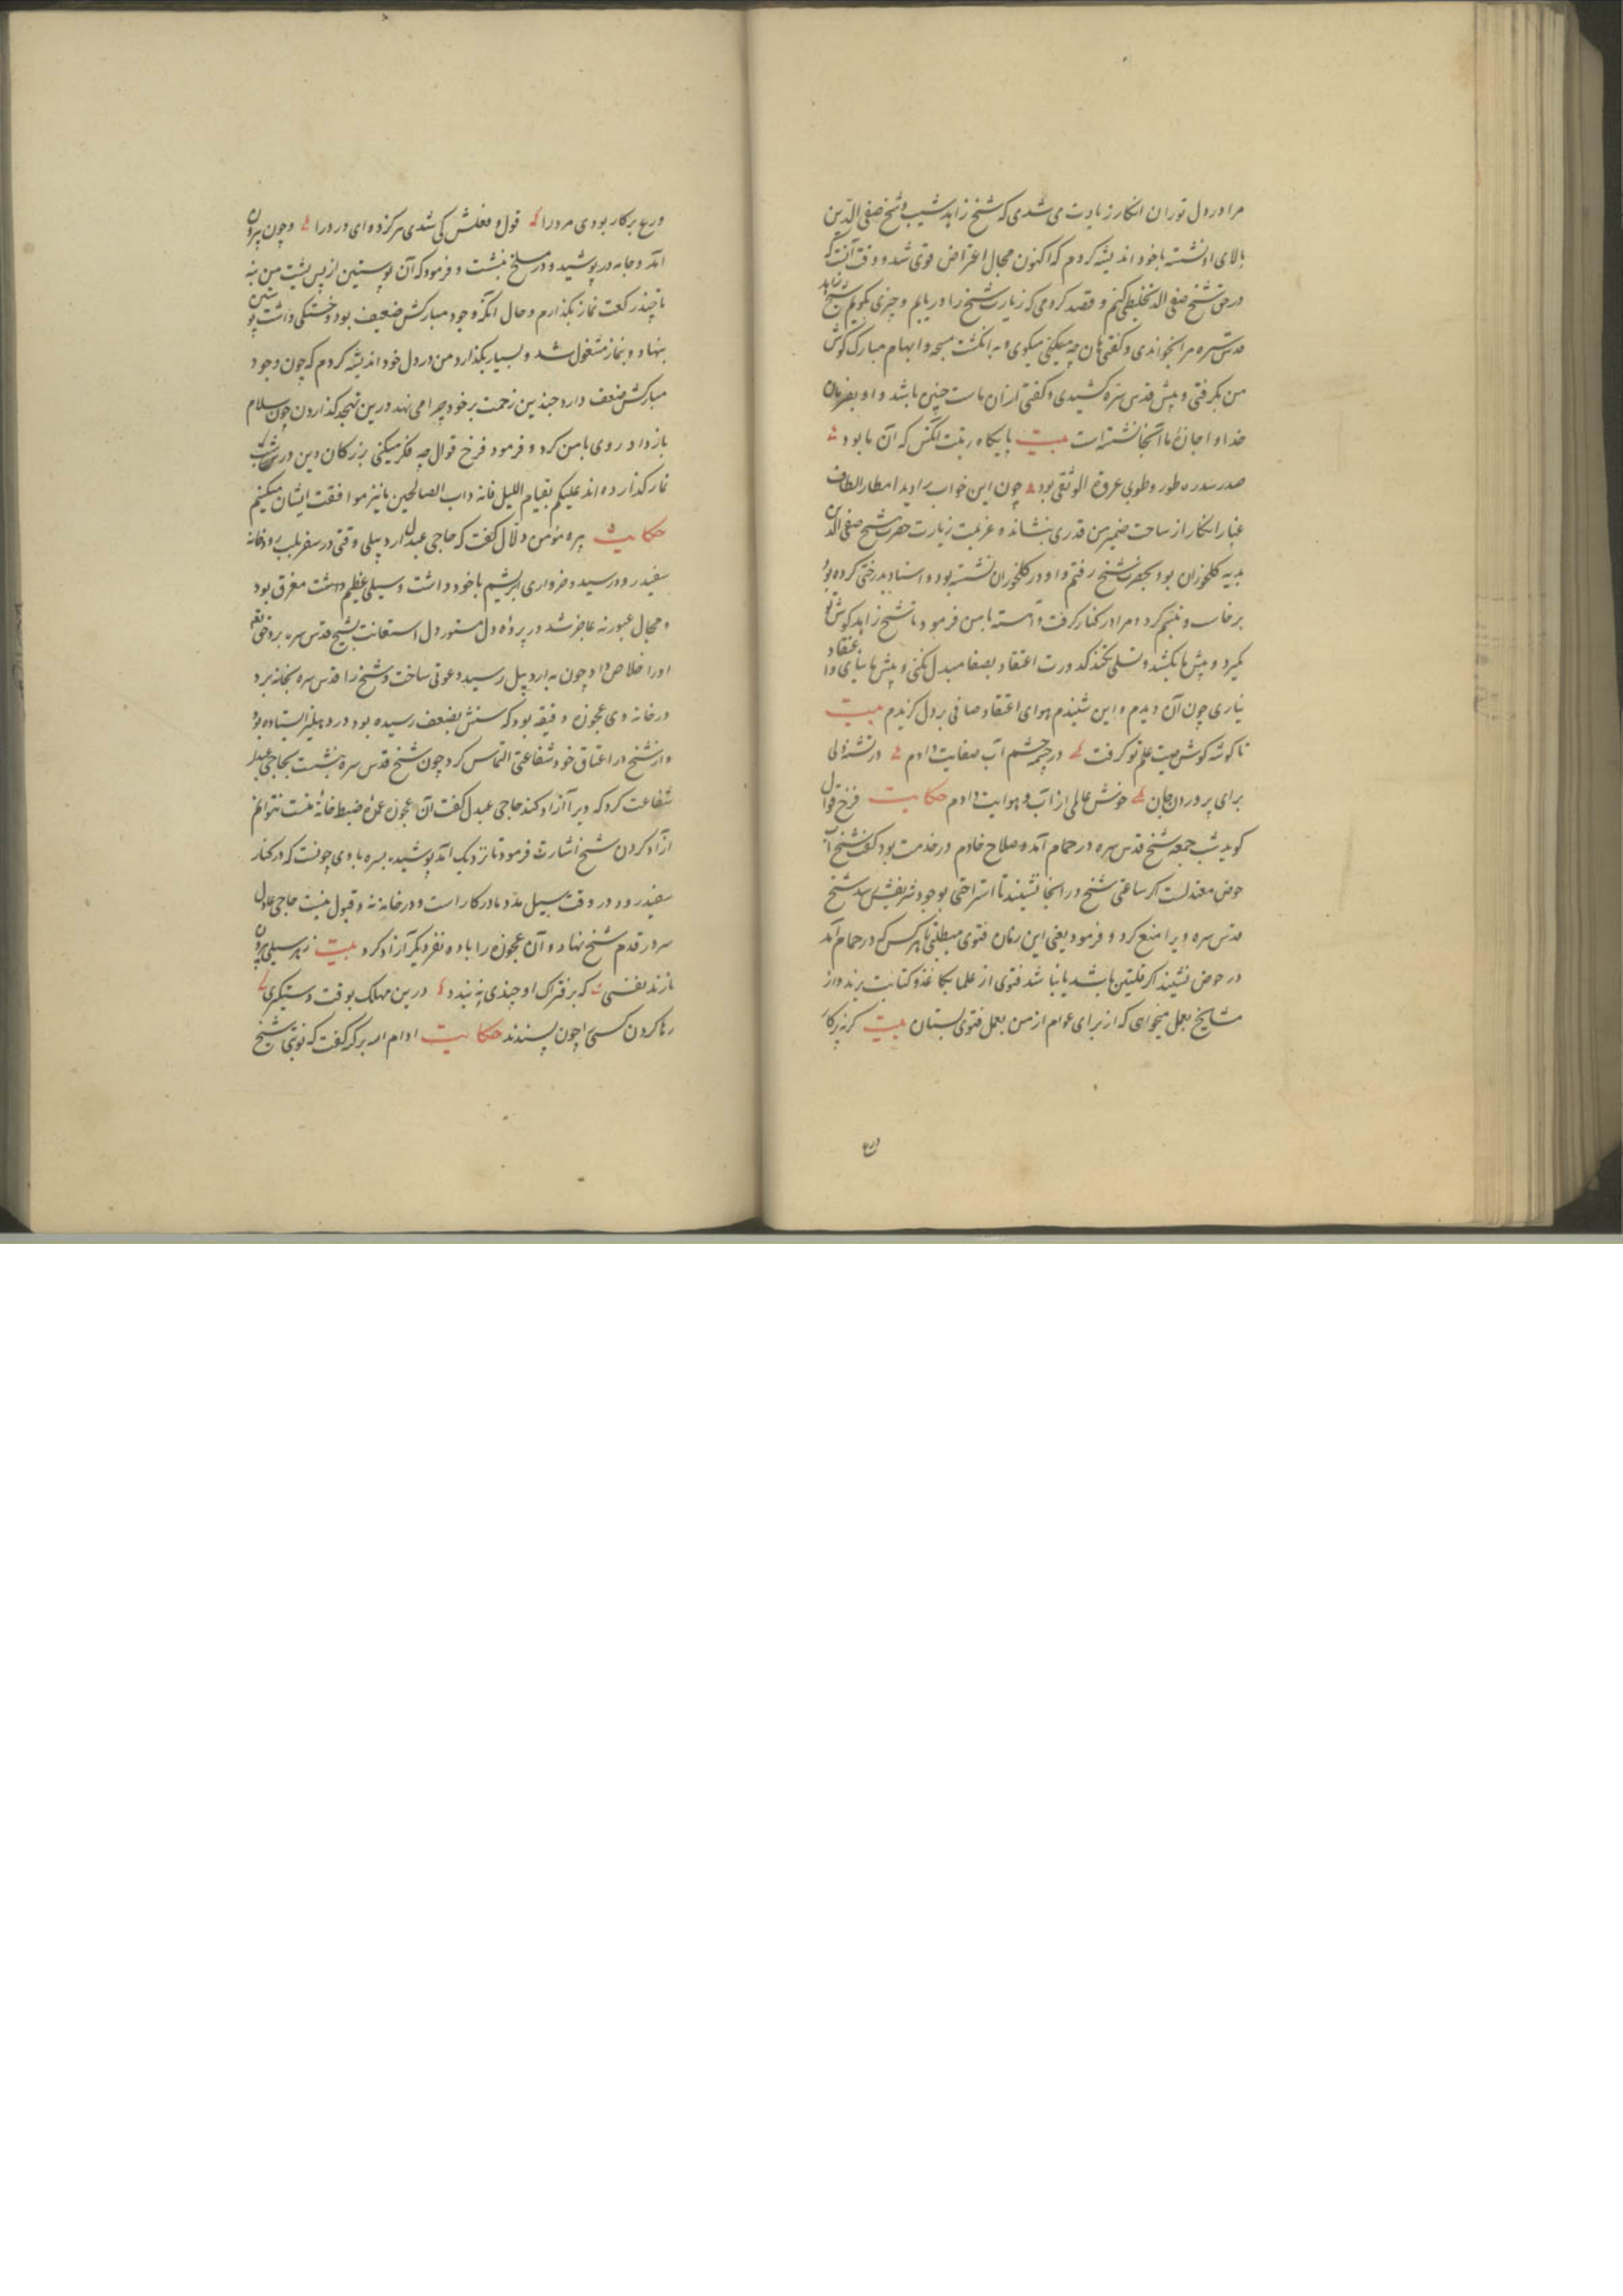 مرا در دل توران انکار زیادت می شدی که شیخ زاهد شیب و شیخ صفی الدین
بالای او نشسته با خود اندیشه کردم که اکنون مجال اعتراض قوی شد و وقت آنست که
در حق شیخ صفی الدین تخلیطی کنم و قصد کردمی که زیارت شیخ را دریابم و چیزی بگویم شیخ زاهد
قدس سره مرا بخواندی و گفتی هان چه میکنی میگوی و به انگشت مسبحه و ابهام مبارک گوش
من بگرفتی و پیش قدس سره کشیدی و گفتی از آن ماست چنین باشد و او بفرمان
خدا و اجازهٔ ما آنجا نشسته است بیت پایگاه رتبت آنکس که آن ما بود
صدر سدره طور و طوبی عروة الوثقی بود چون این خواب را دید امطار الطاف
غبار انکار از ساحت ضمیر من قدری بنشاند و عزیمت زیارت حضرت شیخ صفی الدین
بدیه کلخوران بود بحضرت شیخ رفتم و او در کلخوران نشسته بود و اسناد بدرختی کرده بود
برخاست و تبسم کرد و مرا در کنار گرفت و آهسته با من فرمود تا شیخ زاهد گوش تو
نگیرد و پیش ما نکشد و تسلی نکند کدورت اعتقاد بصفا مبدل نکنی و پیش ما نیایی و اعتقاد
نیاری چون آن دیدم و این شنیدم هوای اعتقاد صافی بر دل گزیدم بیت
تا گوشه گوش صیت علم تو گرفت در چشمه چشم آب صفایت دادم در تشنه دلی
برای پروردن جان خوش عالمی از آب و هوایت دادم حکایت فرخ قوال
گوید شب جمعه شیخ قدس سره در حمام آمد و صلاح خادم در خدمت بود گفت شیخ آب
حوض معتدلست اگر ساعتی شیخ در انجا نشیند تا استراحتی بوجود شریفش رسد شیخ
قدس سره ویرا منع کرد و فرمود یعنی این زمان فتوی میطلبی تا هر کس که در حمام آمد
در حوض نشیند اگر قلتین باشد یا نباشد فتوی از علما بکاغذ و کتابت برند و از
مشایخ بعمل میخواهی که از برای عوام از من بعمل فتوی بستان بیت گرنه بر کار
ورع
ورع بر کار بودی مرد را قول و فعلش کی شدی هرگز دوای درد را و چون بیرون
آمد و جامه در پوشید و در مسلخ بنشست و فرمود که آن پوستین از پس پشت من بنه
تا چند رکعت نماز بگذارم و حال آنکه وجود مبارکش ضعیف بود و خستگی داشت پوستین
بنهاد و بنماز مشغول شد و بسیار بگذارد من در دل خود اندیشه کردم که چون وجود
مبارکش ضعف دارد چندین زحمت بر خود چرا می نهد درین تهجد گذاردن چون سلام
باز داد روی با من کرد و فرمود فرخ قوال چه فکر میکنی بزرگان دین در شب
نماز گذارده اند علیکم بقیام اللیل فانه داب الصالحین ما نیز موافقت ایشان میکنیم
حکایت پیره مؤمن دلال گفت که حاجی عبدل اردبیلی وقتی در سفر بلب رودخانه
سفید رود رسید و خرواری ابریشم با خود داشت و سیلی عظیم داشت مغرق بود
و مجال عبور نه عاجز شد در پردهٔ دل مستور دل استعانت بشیخ قدس سره برد حق تعالی
او را خلاص داد چون به اردبیل رسید دعوتی ساخت و شیخ را قدس سره بخانه برد
در خانه وی عجوزه رقیقه بود که سنش بضعف رسیده بود در دهلیز ایستاده بود
و از شیخ در اعتاق خود شفاعتی التماس کرد چون شیخ قدس سره بنشست بحاجی عبدل
شفاعت کرد که ویرا آزاد کند حاجی عبدل گفت آن عجوزه عمدهٔ ضبط خانهٔ منست نتوانم
آزاد کردن شیخ اشارت فرمود تا نزدیک آمد پوشیده بسره با وی چونست که در کنار
سفید رود در وقت سیل مدد ما در کار است و در خانه نه و قبول نیست حاجی عبدل
سر در قدم شیخ نهاد و آن عجوزه را با ده نفر دیگر آزاد کرد بیت ز بهر سیلی بیرون
نازند نفسی که بر فتراک او چندی نه بندد درین مهلک بوقت دستگیری
رها کردن کسی را چون پسندند حکایت ادام الله برکه گفت که نوبتی شیخ